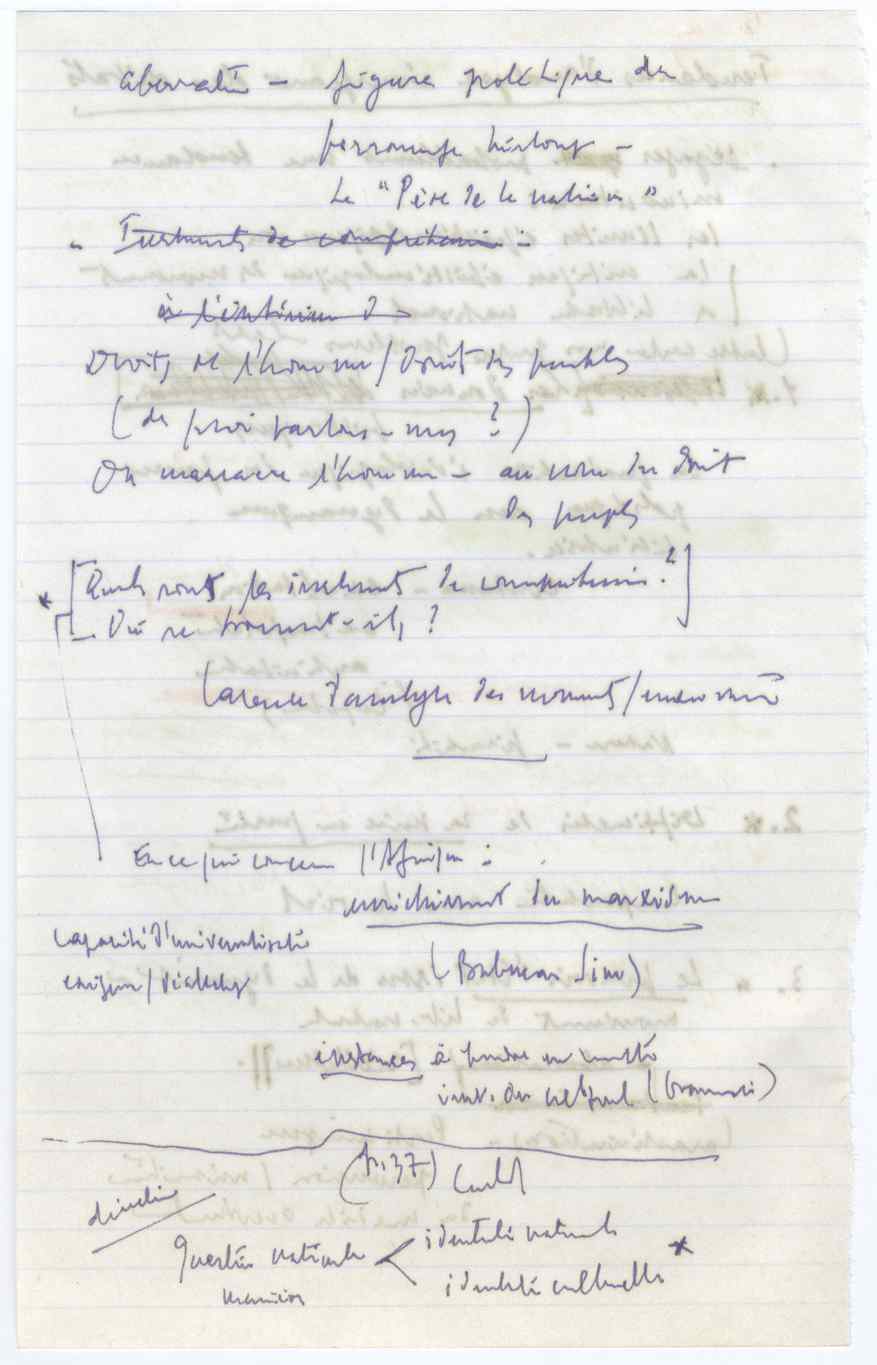 aberration – figure politique du
personnage historiq –
Le "Père de la nation"
- Instruments de compréhension :
à l'intérieur
Droits de l'homme / Droit des peuples
(de quoi parlons-nous ?)
On massacre l'homme – au nom du droit
des peuples
* [Quels sont les instruments de compréhension ?]
– Où se trouvent-ils ?
Carence d'analyse des mouvts /
En ce qui concerne l'Afrique :
enrichissement du marxisme
capacité d'universalisation
(Babacar Sine)
instances à prendre en compte
inst. du culturel (Gramsci)
(p. 37) Cabral
direction
Question nationale < identité nationale
identité culturelle *